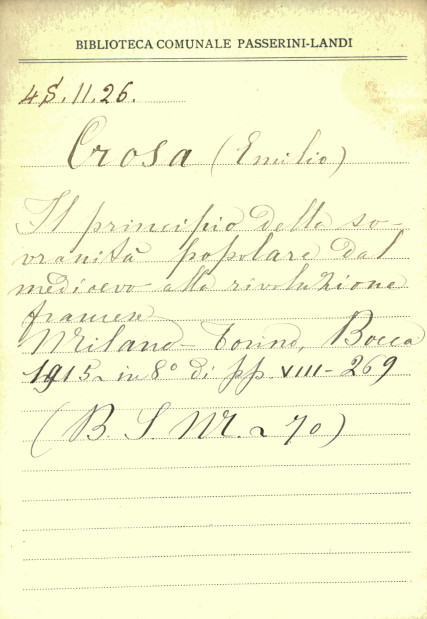 BIBLIOTECA COMUNALE PASSERINI-LANDI
4S.11.26.
Crosa (Emilio)
Il principio della so-
vranità popolare dal
medioevo alla rivoluzione
francese
Milano-Torino, Bocca
1915 in 8° di pp. VIII-269
(B. S. M. 70)